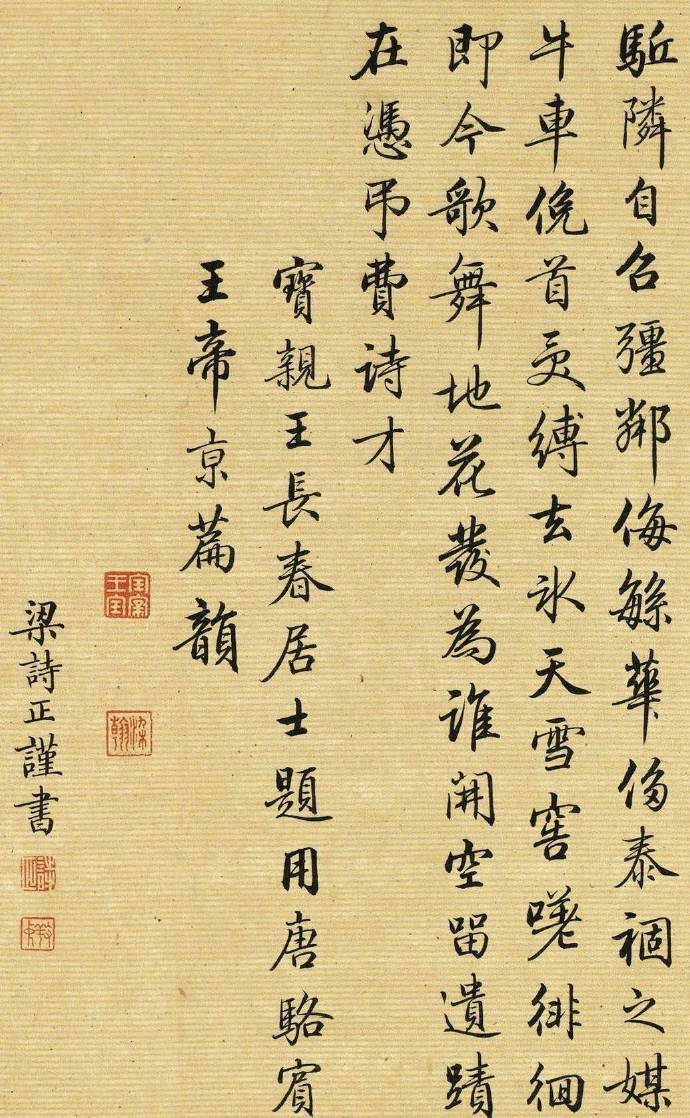 駈隣自召彊鄰侮緐華侈泰禍之媒
牛車俛首受縛去氷天雪窖嗟徘徊
即今歌舞地花發為誰開空留遺蹟
在憑弔費詩才
寶親王長春居士題用唐駱賓
王帝京篇韻
梁詩正謹書